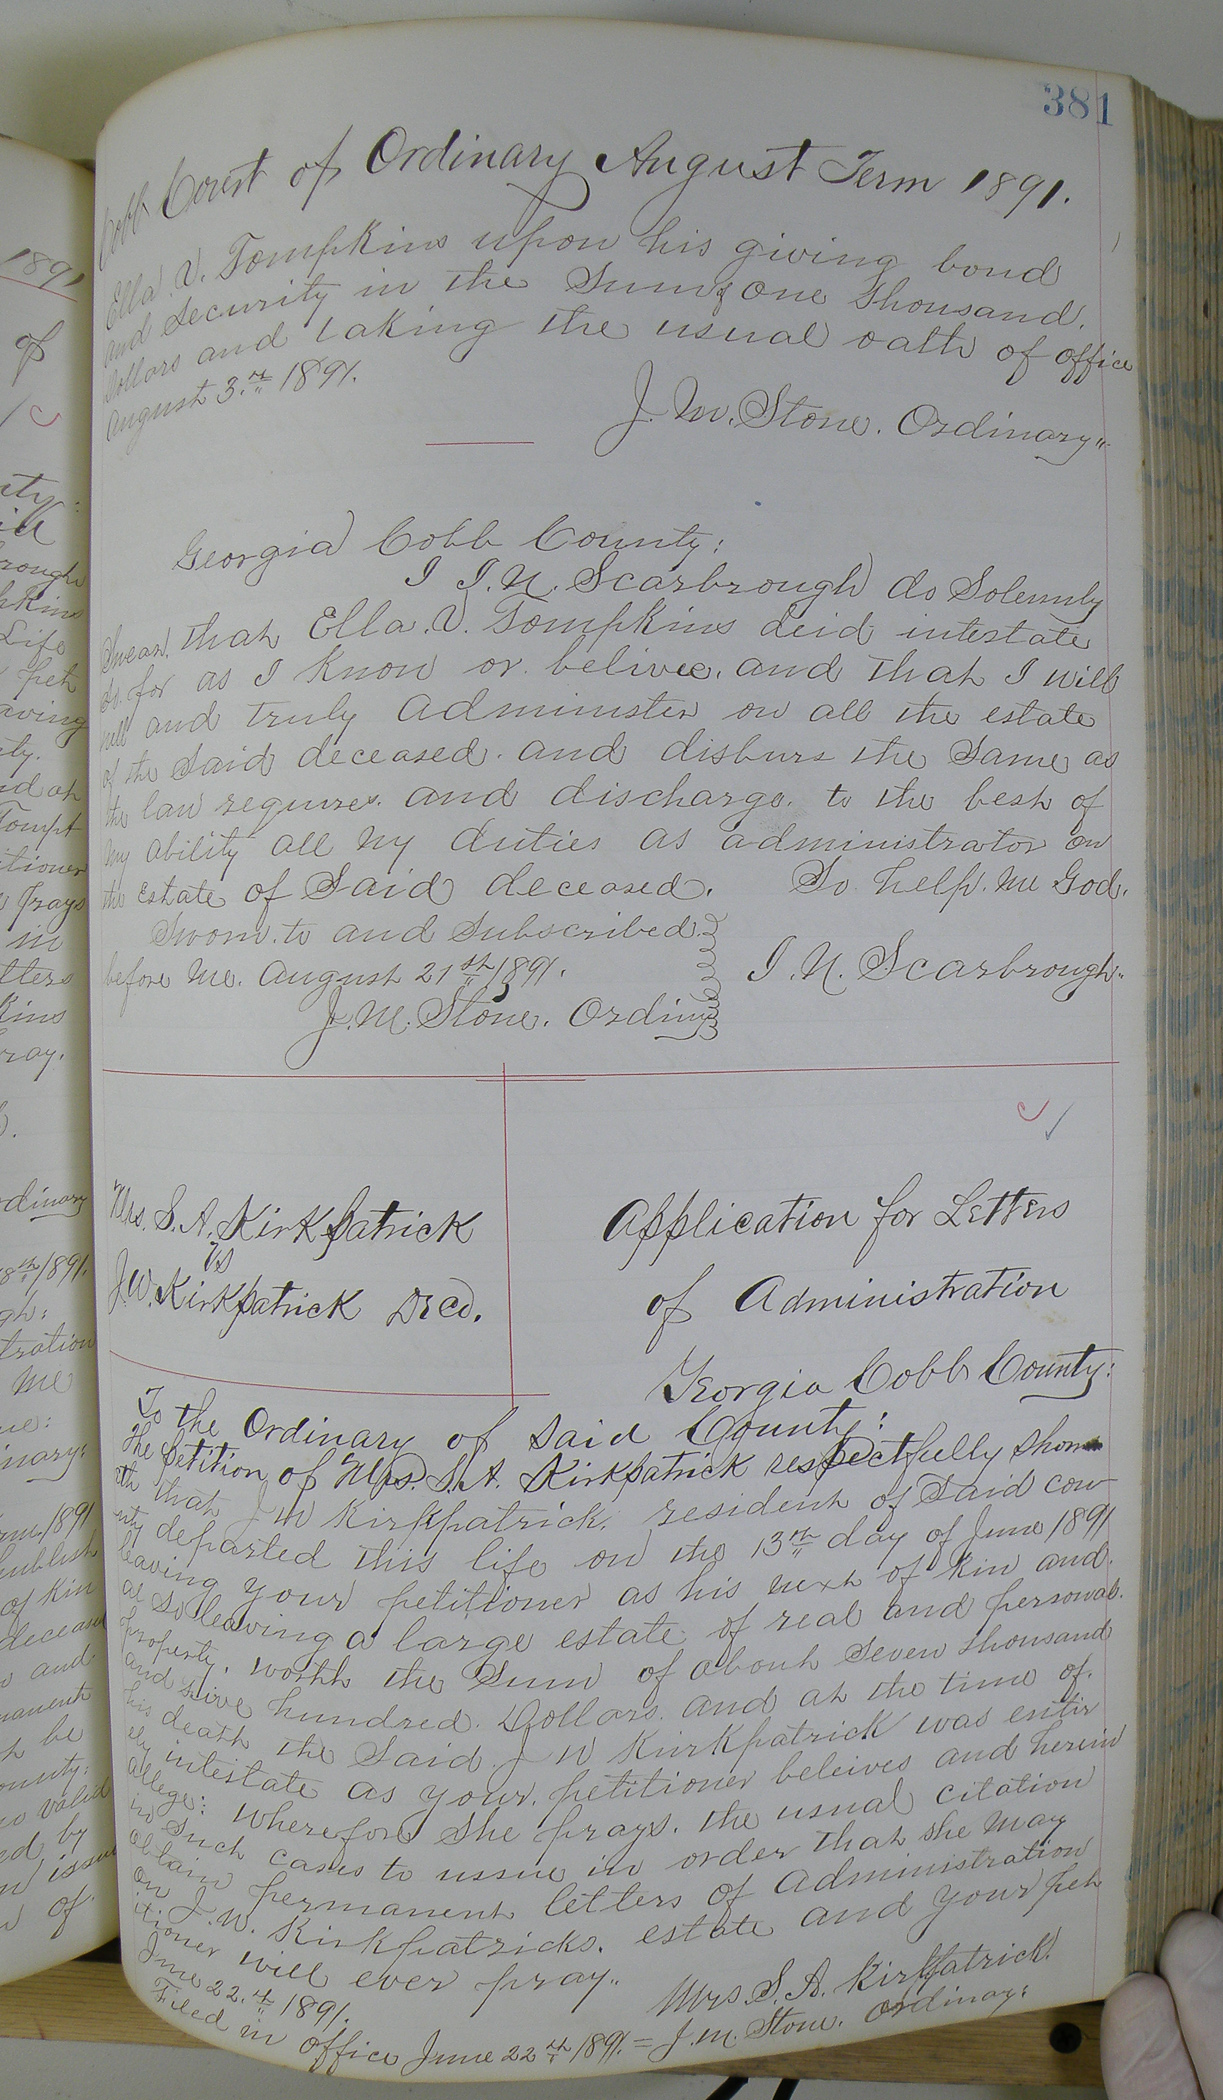 381
Cobb Court of Ordinary August Term 1891.
Ella. V. Tompkins upon his giving bond
and Security in the Sum of One Thousand.
Dollars and taking the usual oath of office
August 3.rd 1891.
J. M. Stone. Ordinary"
Georgia Cobb County:
I I. N. Scarbrough do Solemnly
Swear. that Ella. V. Tompkins deid intestate
So. far as I know or belivee. and that I will
well and truly administer on all the estate
of the Said deceased. and disburs the Same as
the law requires. and discharge. to the best of
my ability all my duties as administrator on
the estate of Said deceased. So help. me God.
Sworn. to and Subscribed
before me. August 21st 1891.
I. N. Scarbrough.
J. M. Stone. Ordiny
Mrs. S. A. Kirkpatrick
vs
J. W. Kirkpatrick Decd.
Application for Letters
of Administration
Georgia Cobb County:
To the Ordinary of Said County:
The petition of Mrs. S. A. Kirkpatrick respectfully show
eth that J W Kirkpatrick. resident of Said cou
nty departed this life on the 13th day of June 1891
leaving your petitioner as his next of kin and.
al so leaving a large estate of real and personal.
property. worth the Sum of about Seven thousand
and five hundred. Dollars. and at the time of.
his death the Said. J W Kirkpatrick was entir
ely intestate as your. petitioner beleives and herein
allege: wherefore She prays. the usual citation
in Such cases to issue in order that she may
obtain permanent letters of administration
on J. W. Kirkpatricks. estate and your pet
itioner will ever pray..
June 22.nd 1891.
Mrs. S. A. Kirkpatrick.
Filed in office June 22nd 1891. = J. M. Stone. Ordinary:
1891
of